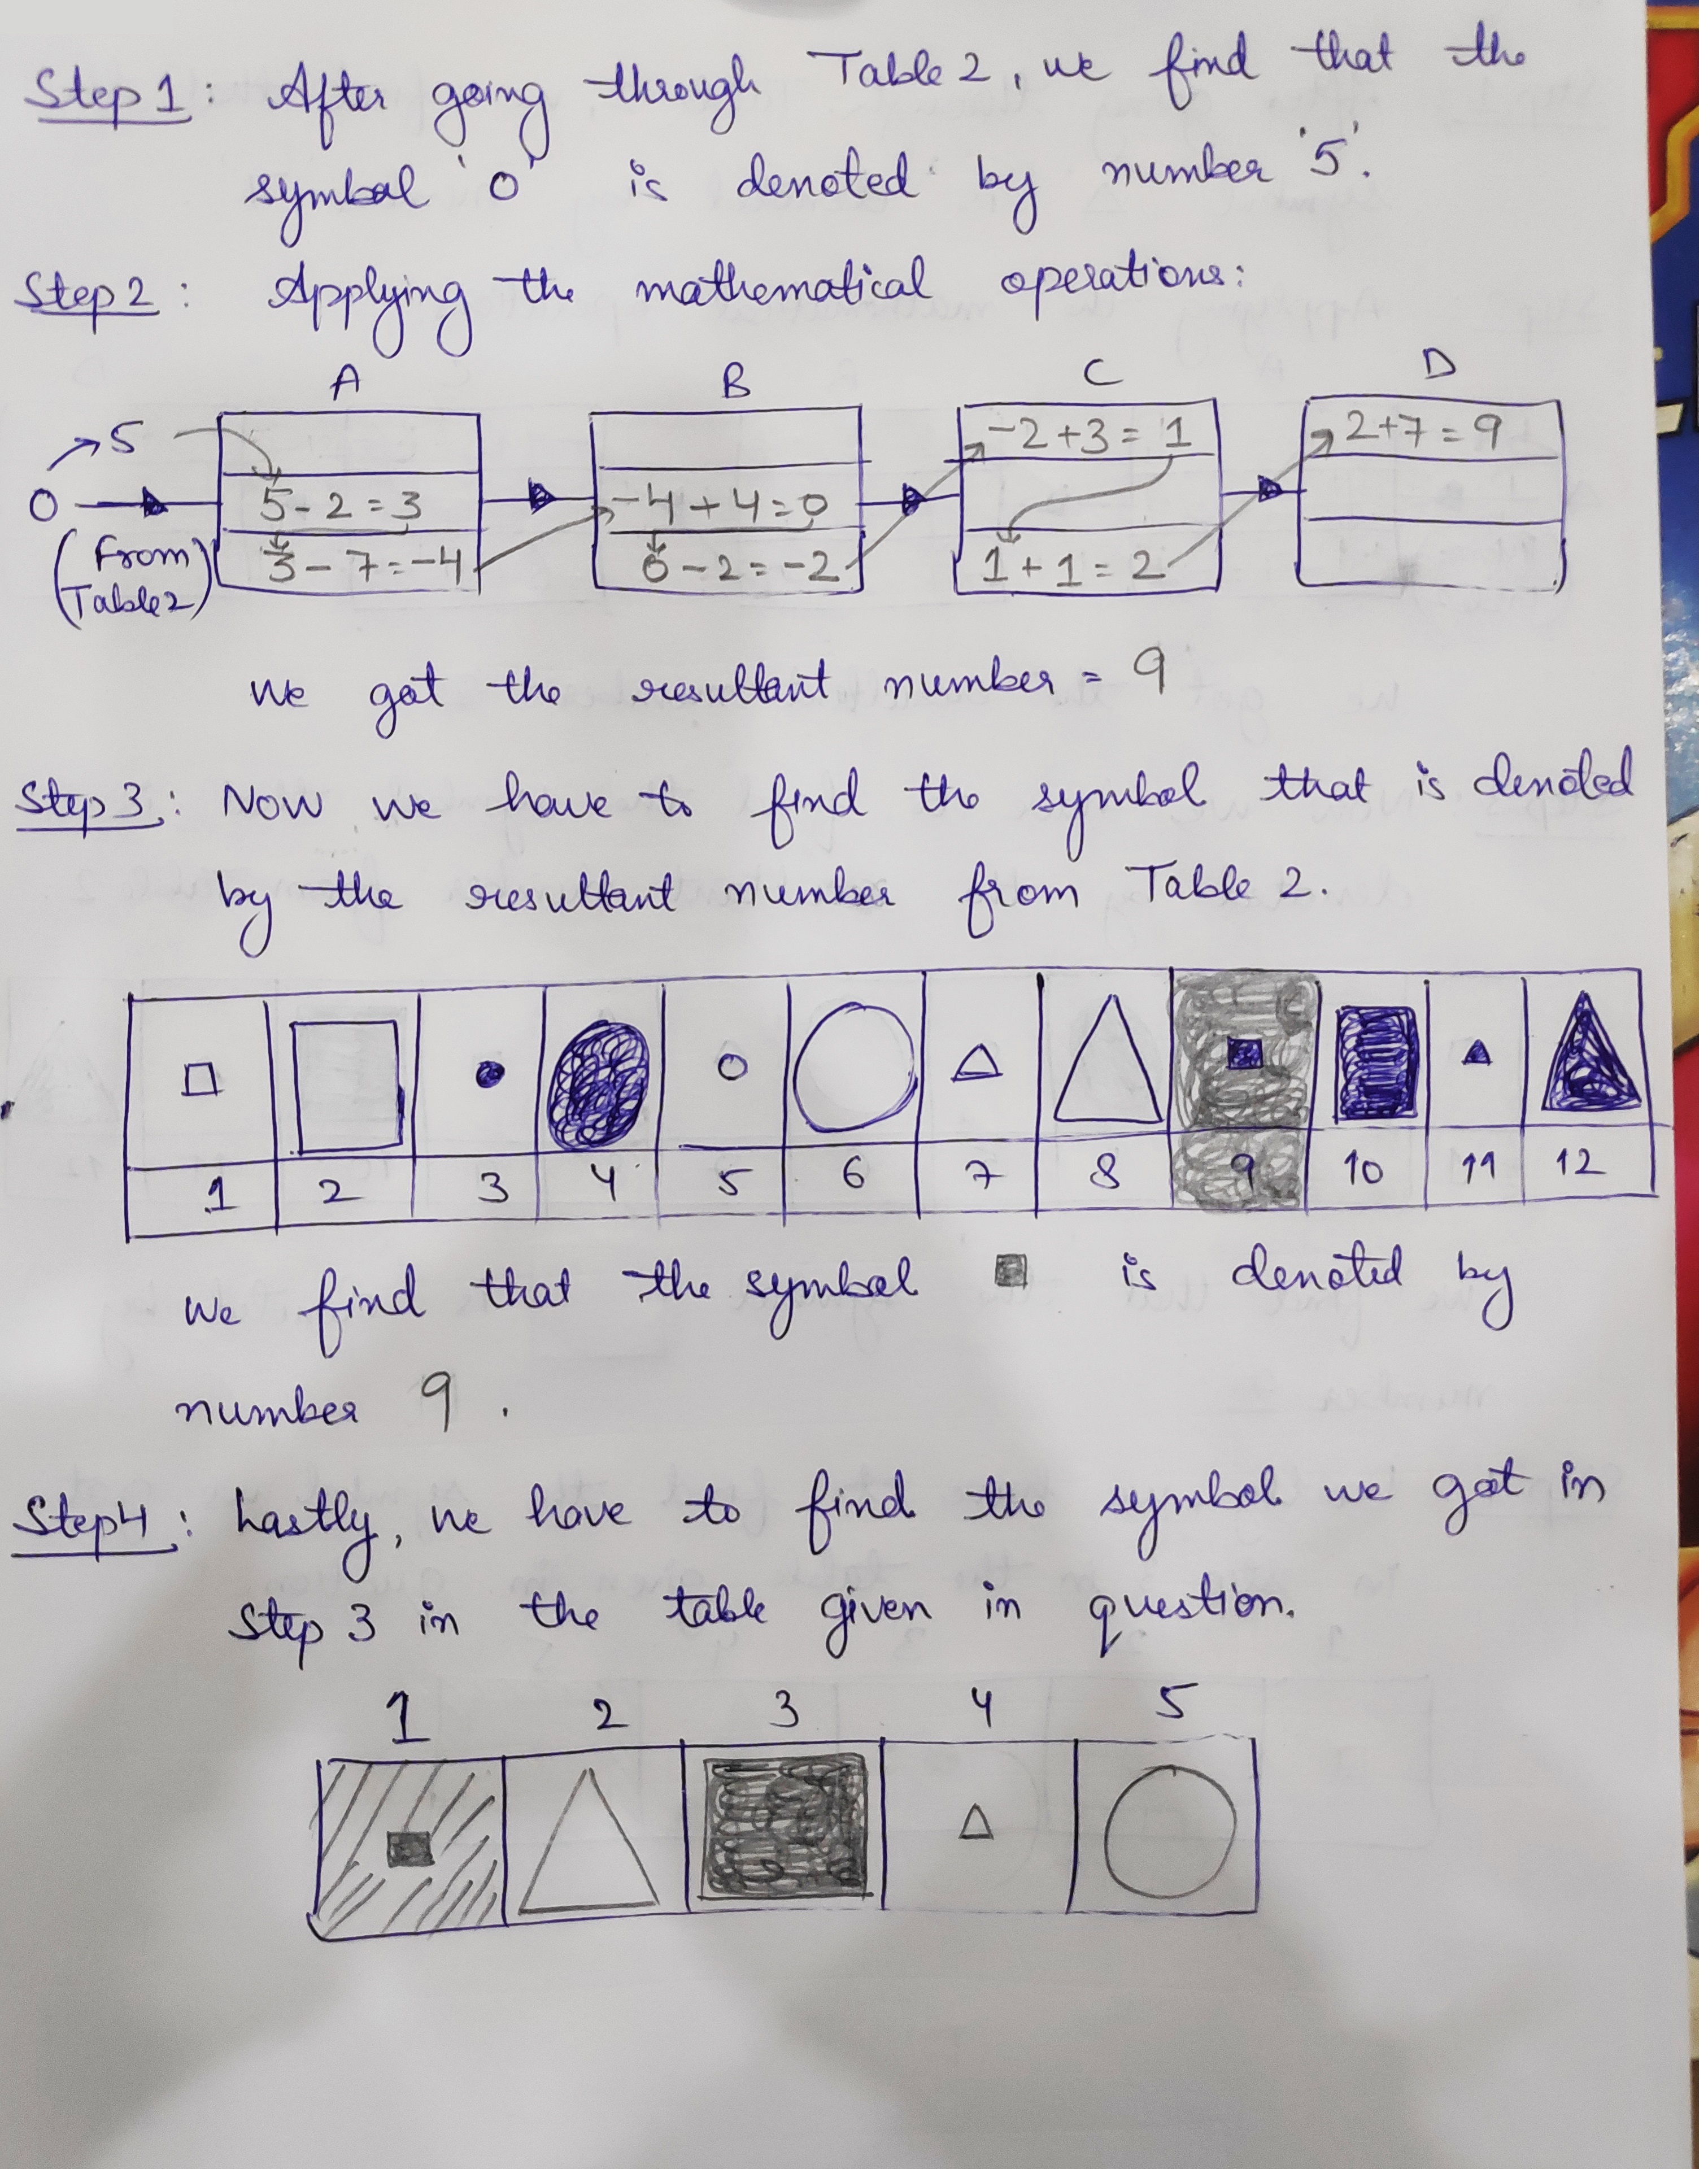 Step 1: After going through Table 2, we find that the
symbol 'O' is denoted by number '5'.
Step 2: Applying the mathematical operations:
A B C D
5
O
(From
Table 2)
5-2=3
3-7=-4
-4+4=0
0-2=-2
-2+3=1
1+1=2
2+7=9
we got the resultant number = 9
Step 3: Now we have to find the symbol that is denoted
by the resultant number from Table 2.
1 2 3 4 5 6 7 8 9 10 11 12
we find that the symbol is denoted by
number 9.
Step 4: Lastly, we have to find the symbol we got in
Step 3 in the table given in question.
1 2 3 4 5